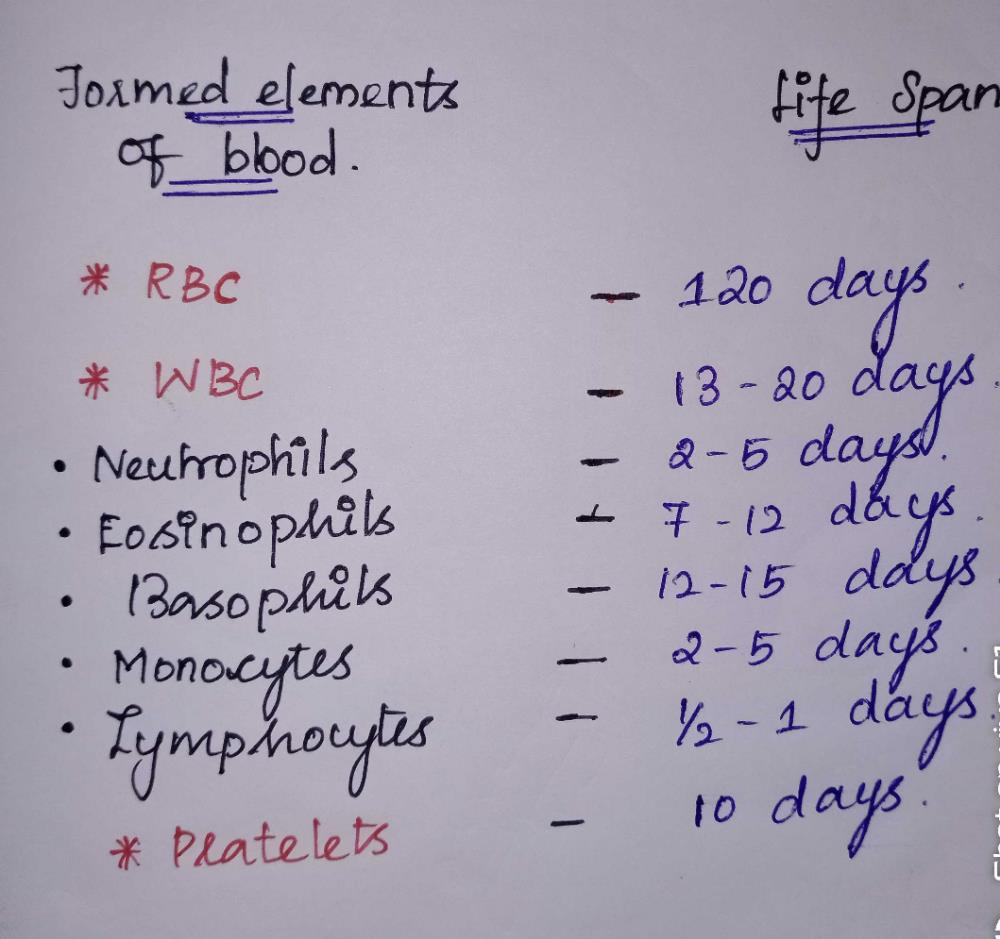 Formed elements Life Span
of blood.
* RBC — 120 days.
* WBC — 13-20 days.
• Neutrophils — 2-5 days.
• Eosinophils — 7-12 days.
• Basophils — 12-15 days
• Monocytes — 2-5 days.
• Lymphocytes — ½-1 days.
* Platelets — 10 days.